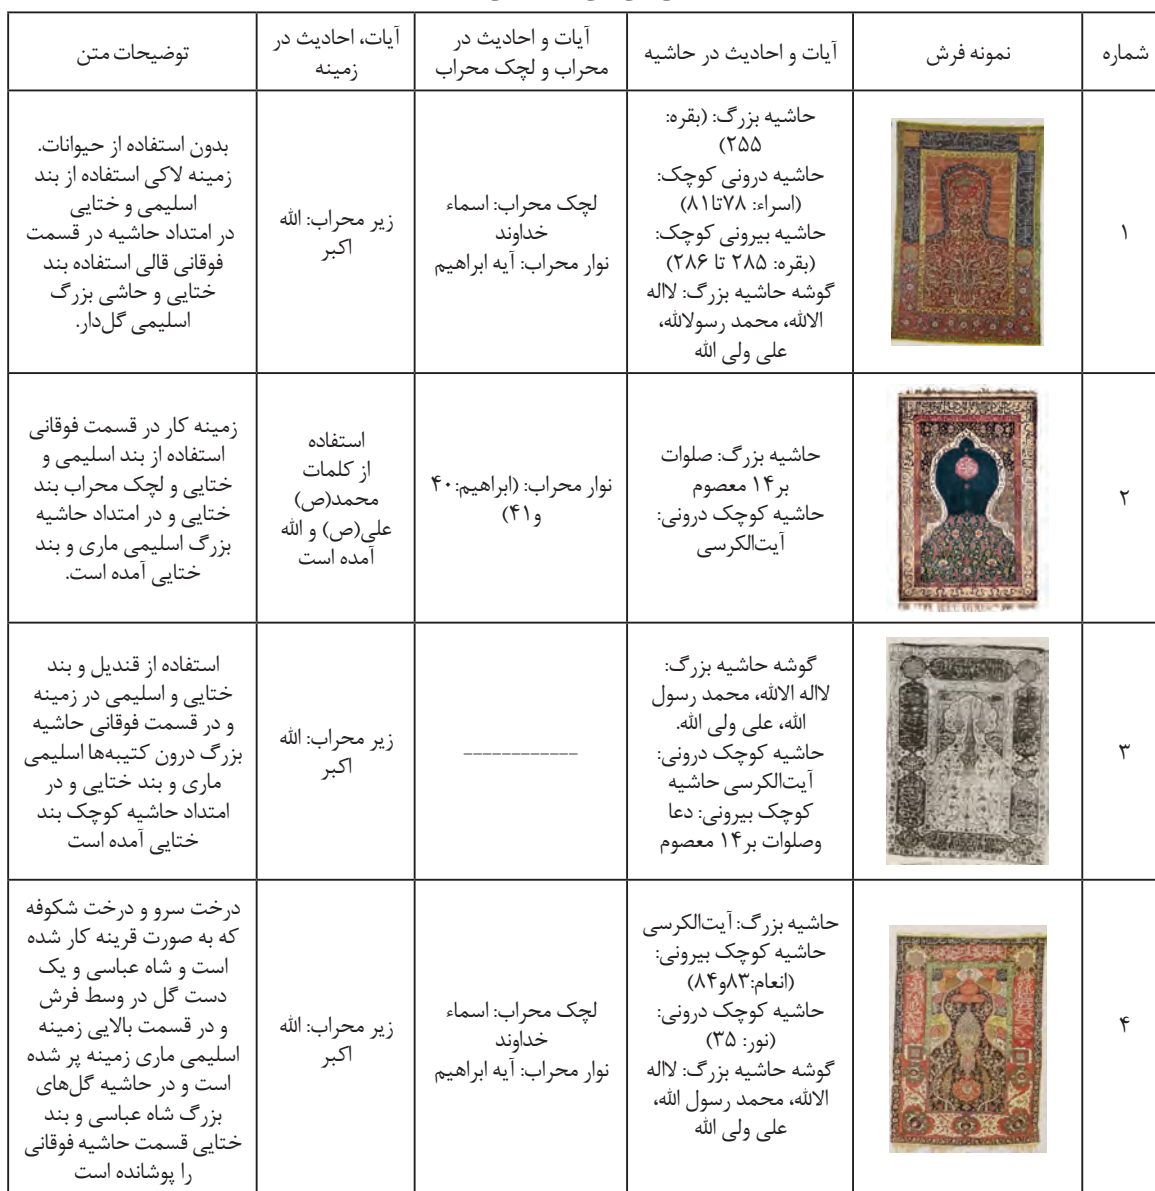 شماره
نمونه فرش
آیات و احادیث در حاشیه
آیات و احادیث در
محراب و لچک محراب
آیات، احادیث در
زمینه
توضیحات متن
۱
حاشیه بزرگ: (بقره:
۲۵۵)
حاشیه درونی کوچک:
(اسراء: ۷۸تا۸۱)
حاشیه بیرونی کوچک:
(بقره: ۲۸۵ تا ۲۸۶)
گوشه حاشیه بزرگ: لااله
الالله، محمد رسولالله،
علی ولی الله
لچک محراب: اسماء
خداوند
نوار محراب: آیه ابراهیم
زیر محراب: الله
اکبر
بدون استفاده از حیوانات.
زمینه لاکی استفاده از بند
اسلیمی و ختایی
در امتداد حاشیه در قسمت
فوقانی قالی استفاده بند
ختایی و حاشی بزرگ
اسلیمی گل‌دار.
۲
حاشیه بزرگ: صلوات
بر۱۴ معصوم
حاشیه کوچک درونی:
آیت‌الکرسی
نوار محراب: (ابراهیم:۴۰
و۴۱)
استفاده
از کلمات
محمد(ص)
علی(ص) و الله
آمده است
زمینه کار در قسمت فوقانی
استفاده از بند اسلیمی و
ختایی و لچک محراب بند
ختایی و در امتداد حاشیه
بزرگ اسلیمی ماری و بند
ختایی آمده است.
۳
گوشه حاشیه بزرگ:
لااله الالله، محمد رسول
الله، علی ولی الله.
حاشیه کوچک درونی:
آیت‌الکرسی حاشیه
کوچک بیرونی: دعا
وصلوات بر۱۴ معصوم
------------
زیر محراب: الله
اکبر
استفاده از قندیل و بند
ختایی و اسلیمی در زمینه
و در قسمت فوقانی حاشیه
بزرگ درون کتیبه‌ها اسلیمی
ماری و بند ختایی و در
امتداد حاشیه کوچک بند
ختایی آمده است
۴
حاشیه بزرگ: آیت‌الکرسی
حاشیه کوچک بیرونی:
(انعام:۸۳و۸۴)
حاشیه کوچک درونی:
(نور: ۳۵)
گوشه حاشیه بزرگ: لااله
الالله، محمد رسول الله،
علی ولی الله
لچک محراب: اسماء
خداوند
نوار محراب: آیه ابراهیم
زیر محراب: الله
اکبر
درخت سرو و درخت شکوفه
که به صورت قرینه کار شده
است و شاه عباسی و یک
دست گل در وسط فرش
و در قسمت بالایی زمینه
اسلیمی ماری زمینه پر شده
است و در حاشیه گل‌های
بزرگ شاه عباسی و بند
ختایی قسمت حاشیه فوقانی
را پوشانده است